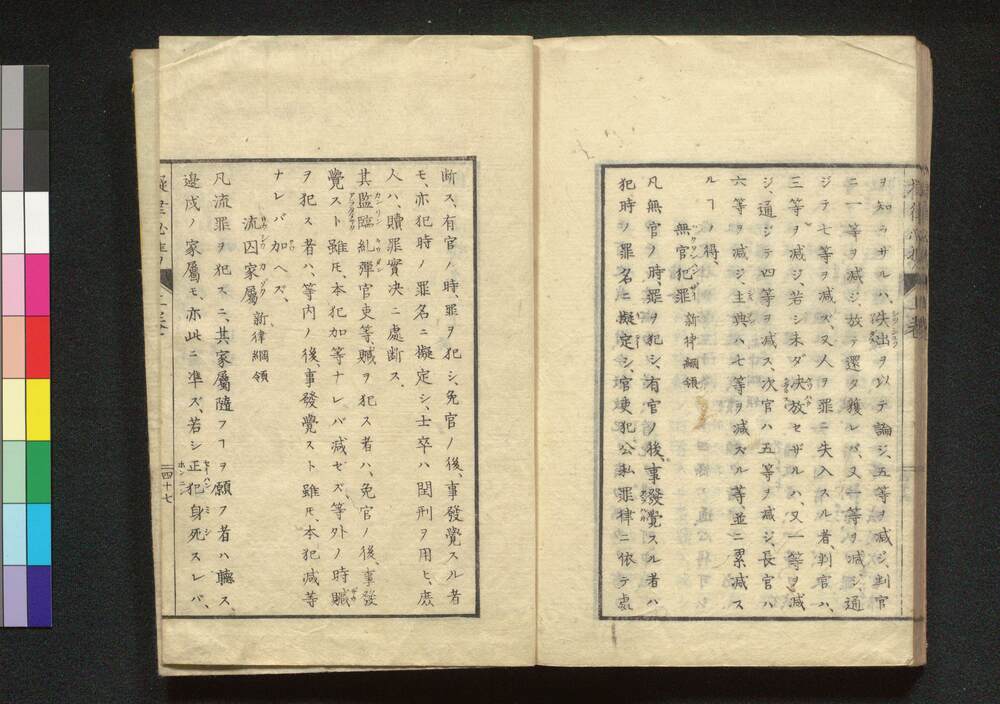 ヲ知ラザルハ、失出ヲ以テ論ジ、五等ヲ減ジ、判官
ニ一等ヲ減ジ、放テ還タ獲レバ、又一等ヲ減ジ、通
ジテ七等ヲ減ズ、又人ヲ罪ニ失入スル者、判官ハ、
三等ヲ減ジ、若シ未ダ决放セザルハ、又一等ヲ減
ジ、通ジテ四等ヲ減ス、次官ハ五等ヲ減ジ、長官ハ
六等ヲ減ジ、主典ハ七等ヲ減ズル等、並ニ累減ス
ルヿノ得、
無官犯罪 新律綱領
凡無官ノ時、罪ヲ犯シ、有官ノ後、事發覺スル者ハ
犯時ノ罪名ニ擬定シ、官吏犯公私罪律ニ依テ處
断ス、有官ノ時、罪ヲ犯シ、免官ノ後、事發覺スル者
モ、亦犯時ノ罪名ニ擬定シ、士卒ハ閏刑ヲ用ヒ、庶
人ハ、贖罪實决ニ處断ス、
其監臨糺彈官吏等、贓ヲ犯ス者ハ、免官ノ後、事發
覺スト雖モ、本犯加等ナレバ減ゼズ、等外ノ時贓
ヲ犯ス者ハ、等内ノ後、事發覺スト雖モ、本犯減等
ナレバ加ヘズ、
流囚家屬 新律綱領
凡流罪ヲ犯スニ、其家屬隨フヿヲ願フ者ハ聽ス、
邊戍ノ家屬モ、亦此ニ準ズ、若シ正犯身死スレバ、
四十七